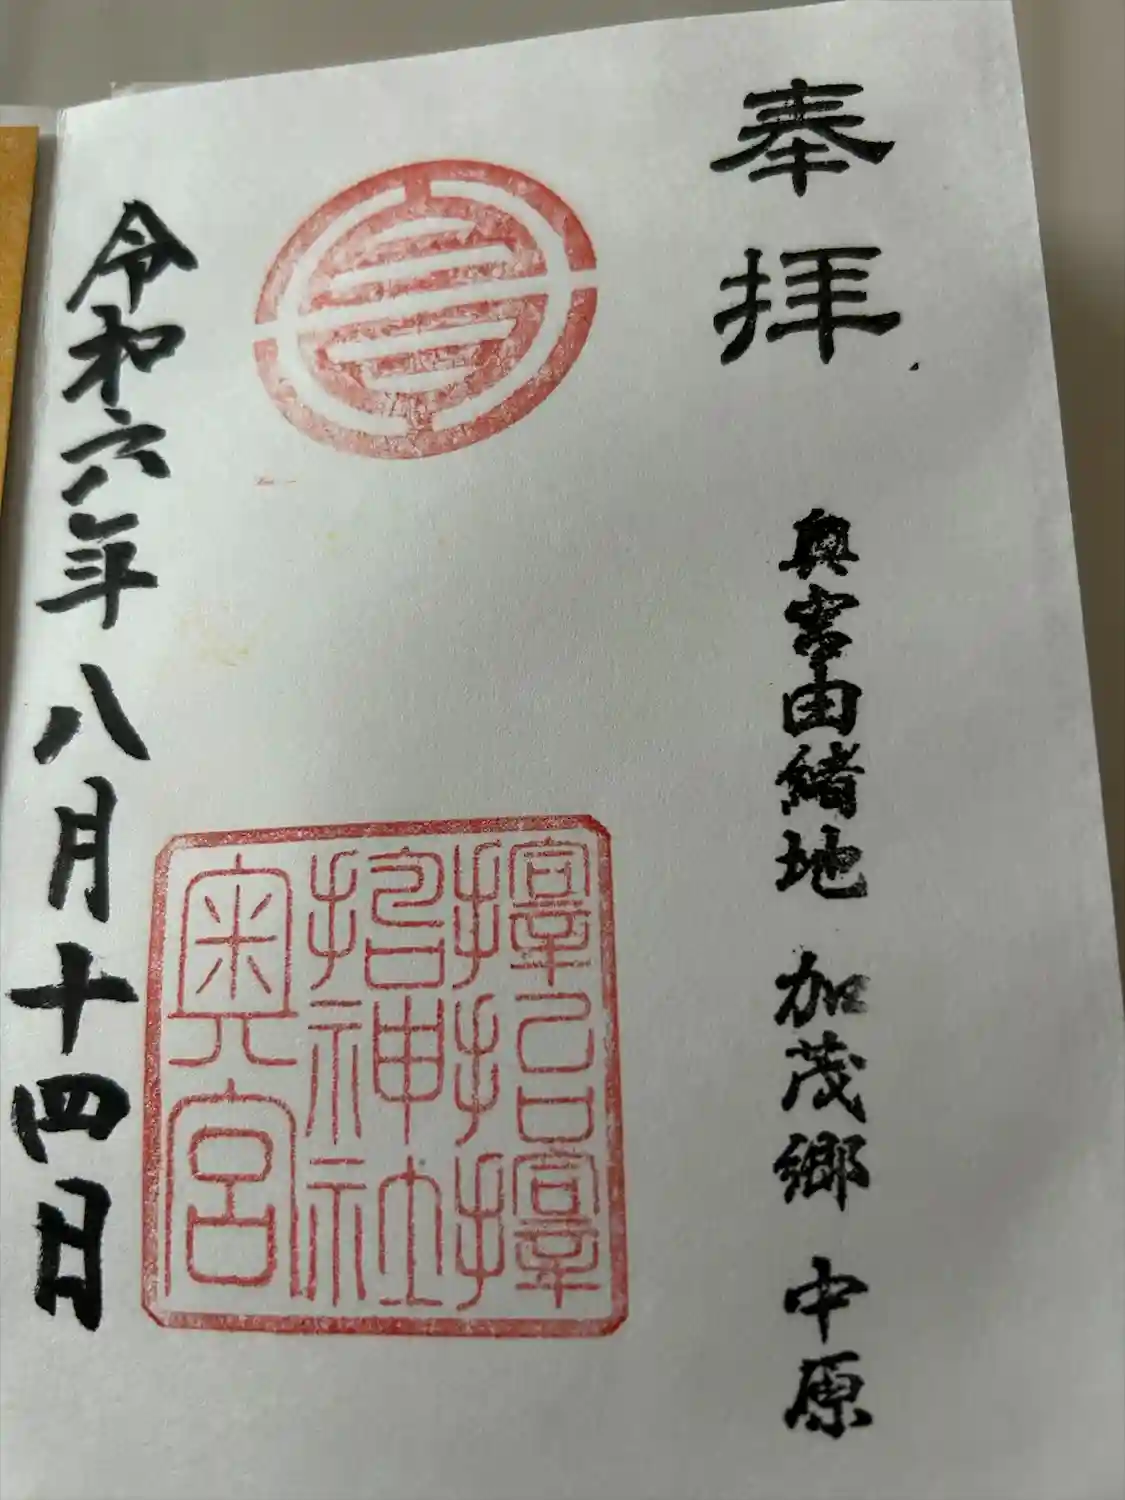 奉拝
奥宮由緒地 加茂郷 中原
神社
奥宮
令和六年八月十四日